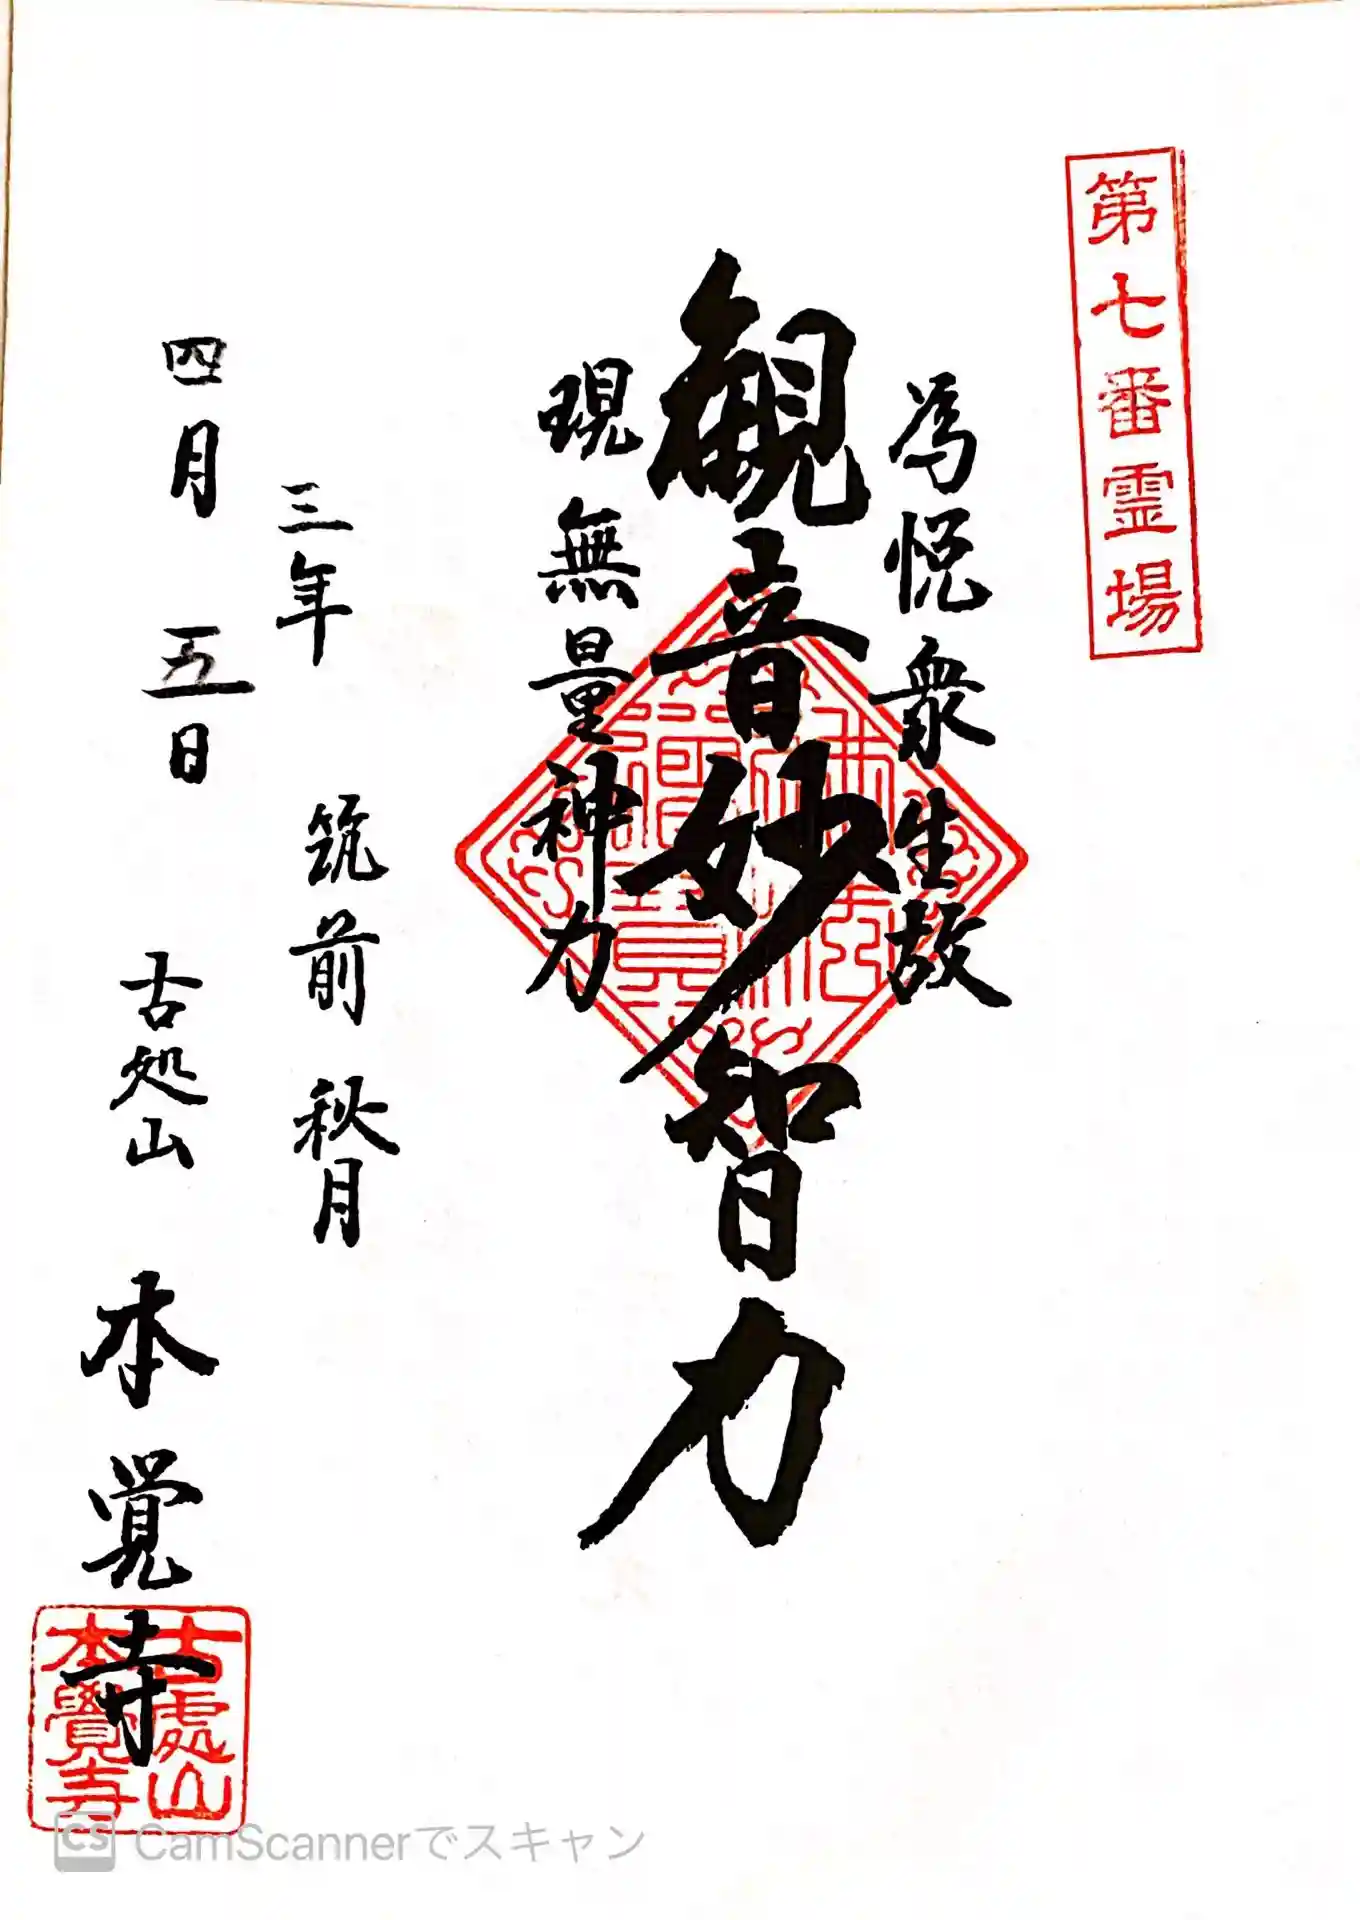 第七番霊場
為悦衆生故
観音妙智力
現無量神力
三年 筑前 秋月
四月 五日 古処山 本覚寺
佛法僧寶
古處山
本覺寺
CS CamScannerでスキャン